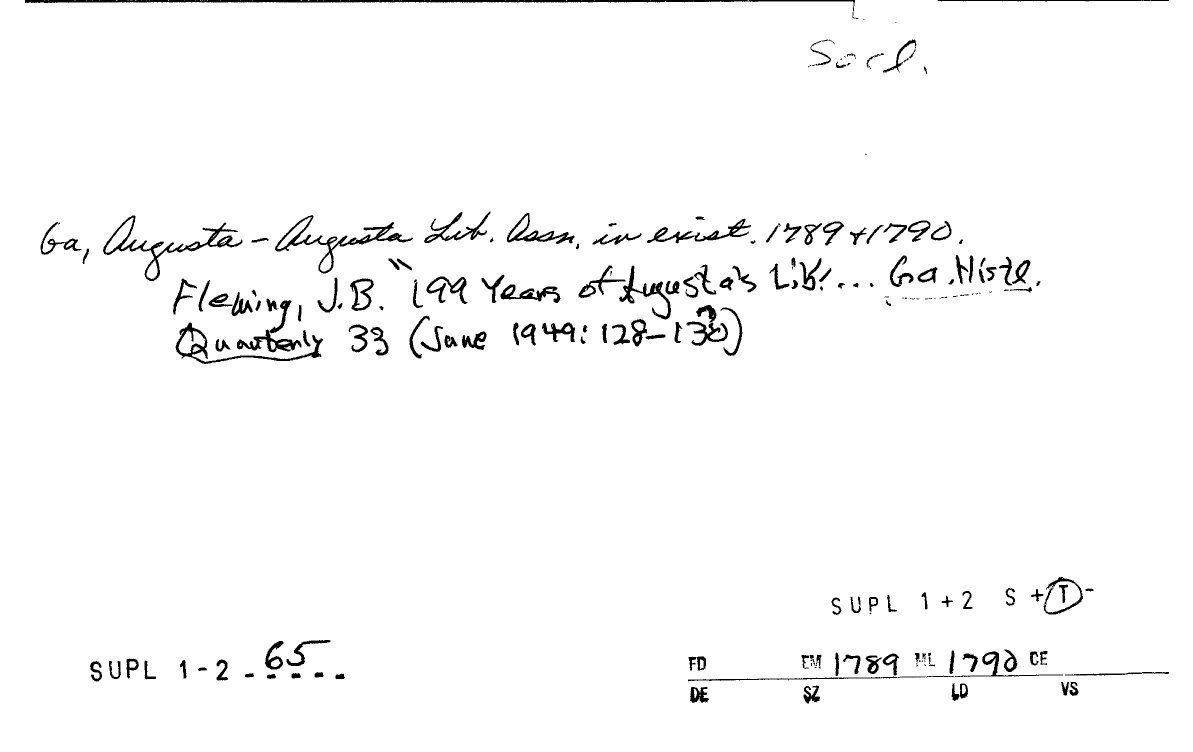 Socl.
Ga, Augusta - Augusta Lib. Assn. in exist. 1789 + 1790.
Fleming, J.B. "199 Years of Augusta's Lib! ... Ga. Histl.
Quarterly 33 (June 1949: 128-130)
SUPL 1+2 S + T -
SUPL 1-2 - 65 - -
FD EM 1789 ML 1790 CE
DE SZ LD VS